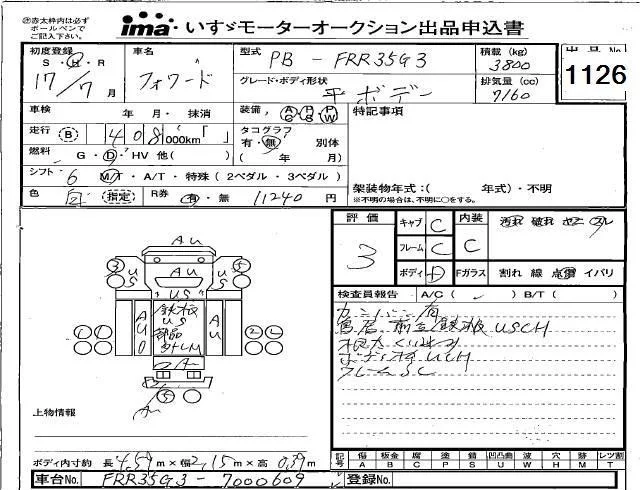 ㊟赤太枠内は必ず
ボールペンで
ご記入下さい。
ima いすゞモーターオークション出品申込書
初度登録
S・H・R
17/7月
車名
フォワード
型式 PB - FRR35G3
グレード・ボディ形状
平ボデー
積載 (kg)
3800
排気量 (cc)
7160
出品No.
1126
車検 年 月・ 抹消
装備 AC PS PW
特記事項
走行 B 408,000km「 」
タコグラフ
有・無 別体
( 年 月)
燃料 G・D・HV 他( )
シフト 6 M/T・A/T・特殊(2ペダル・3ペダル)
架装物年式:( 年式)・不明
※不明の場合は、不明に○をする。
色 白 (指定) R券 有・無 11240 円
評価
3
キャブ C
フレーム C
ボディ D
内装
C
Fガラス
汚れ 破れ
割れ 線 点傷 イバリ
検査員報告 A/C( ) B/T( )
鳥居、前立鉄板USCH
フレームSC
AU
3 US US 5
US
AU 鉄板 US 部品 外しM AU
1 1 2 2
A
5
A
上物情報
ボディ内寸約 長 4.57m×幅2.15m×高 0.39m
記号 傷 A 板金 B 腐 C 塗 P 錆 S 凹凸曲 U 波 W 穴 H 跡 M レンズ割 T
車台No. FRR35G3-7000609 登録No.